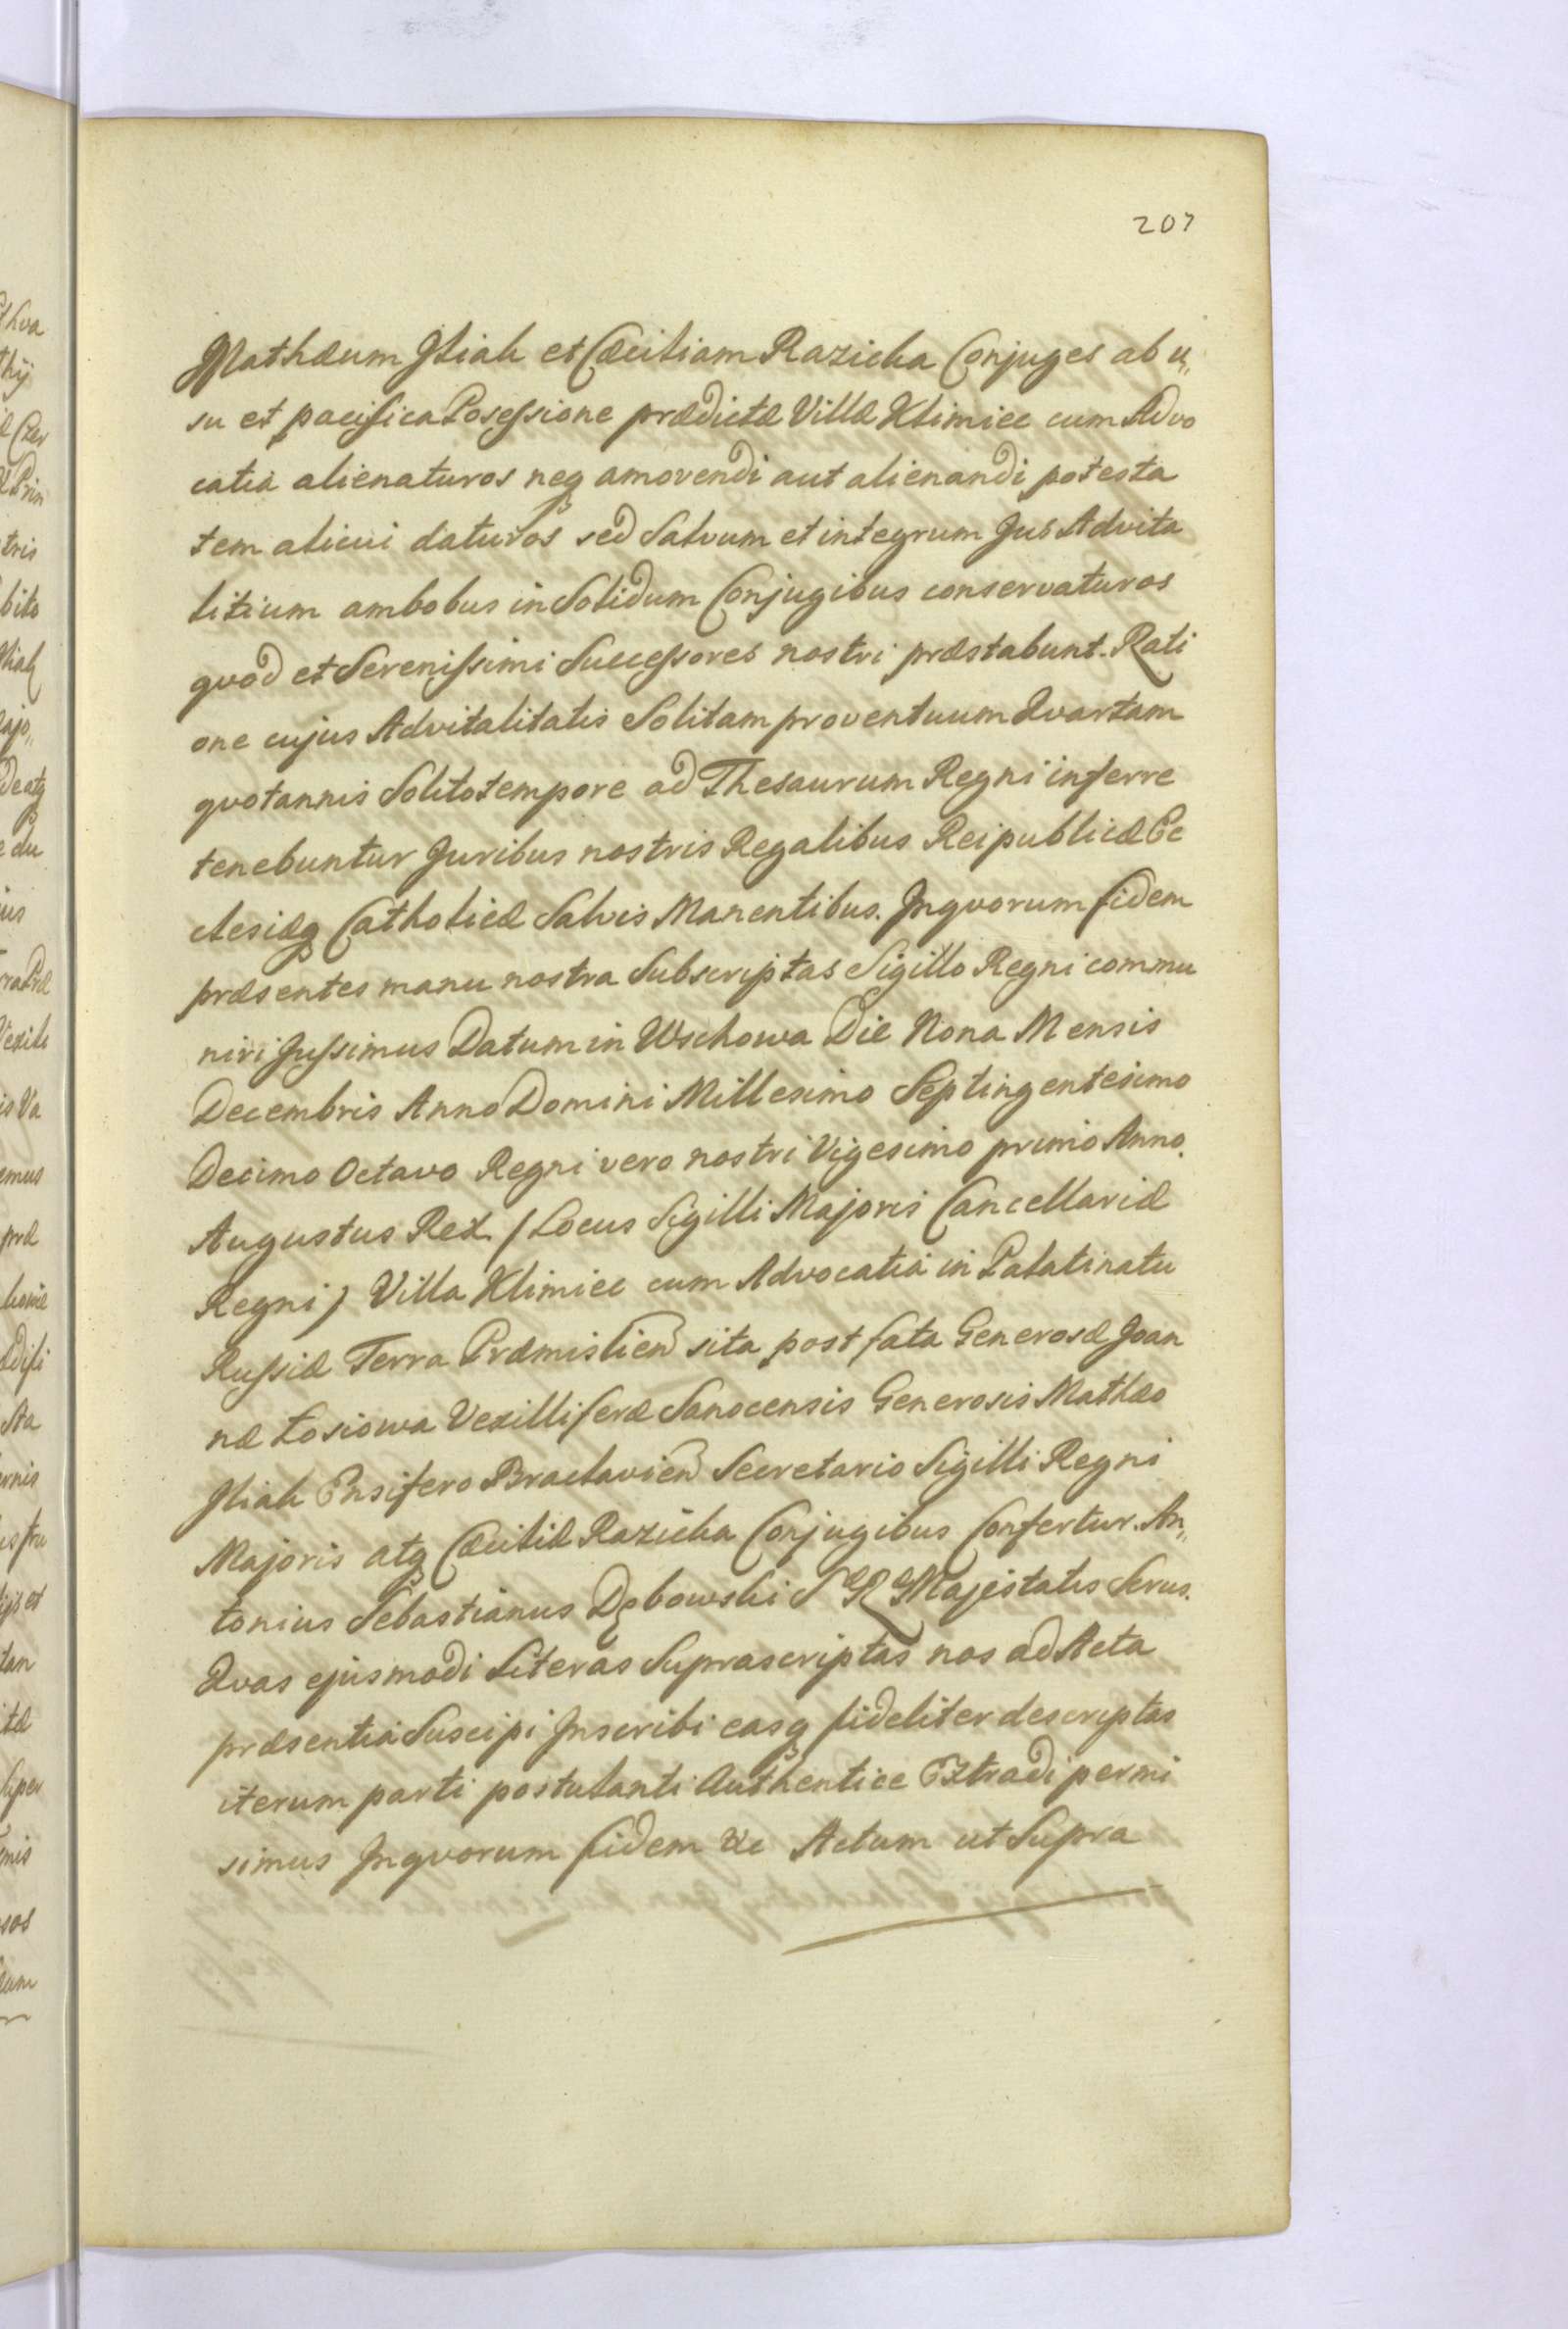 207
Mathæum Jliak et Cæciliam Razicka Conjuges ab u„
su et pacifica Posessione prædictæ Villæ Klimiec cum Advo
catia alienaturos neq amovendi aut alienandi potesta
tem alicui daturos sed Salvum et integrum Jus Advita
litium ambobus in Solidum Conjugibus conservaturos
qvod et Serenissimi Successores nostri præstabunt. Rati
one cujus Advitalitatis Solitam proventuum Qvartam
qvotannis Solito tempore ad Thesaurum Regni inferre
tenebuntur Juribus nostris Regalibus Reipublicæ Ec
clesiæq Catholicæ Salvis Manentibus. Jnqvorum fidem
præsentes manu nostra Subscriptas Sigillo Regni commu
niri Jussimus Datum in Wschowa Die Nona Mensis
Decembris Anno Domini Millesimo Septingentesimo
Decimo Octavo Regni vero nostri Vigesimo primo Anno.
Augustus Rex / Locus Sigilli Majoris Cancellariæ
Regni / Villa Klimiec cum Advocatia in Palatinatu
Russiæ Terra Præmislien sita post fata Generosæ Joan
næ Łosiowa Vexilliferæ Sanocensis Generosis Mathæo
Jliak Ensifero Braclavien Secretario Sigilli Regni
Majoris atq Cæciliæ Razicka Conjugibus Confertur. An„
tonius Sebastianus Dębowski S R Majestatis Scrus.
Qvas ejusmodi Literas Suprascriptas nos ad Acta
præsentia Suscipi Jnscribi easq fideliter descriptas
iterum parti postulanti Authentice Extradi permi
simus Jnqvorum fidem &c Actum ut Supra